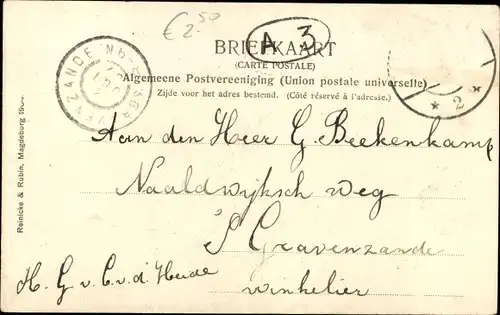 € 2.50
A 3
BRIEFKAART
(CARTE POSTALE)
Algemeene Postvereeniging (Union postale universelle)
Zijde voor het adres bestemd. (Côté réservé à l'adresse.)
2
Aan den Heer G. Beekenkamp
Naaldwijksch weg
's Gravenzande
winkelier
H. G v. C. v. d. Heide
Reinicke & Rubin, Magdeburg